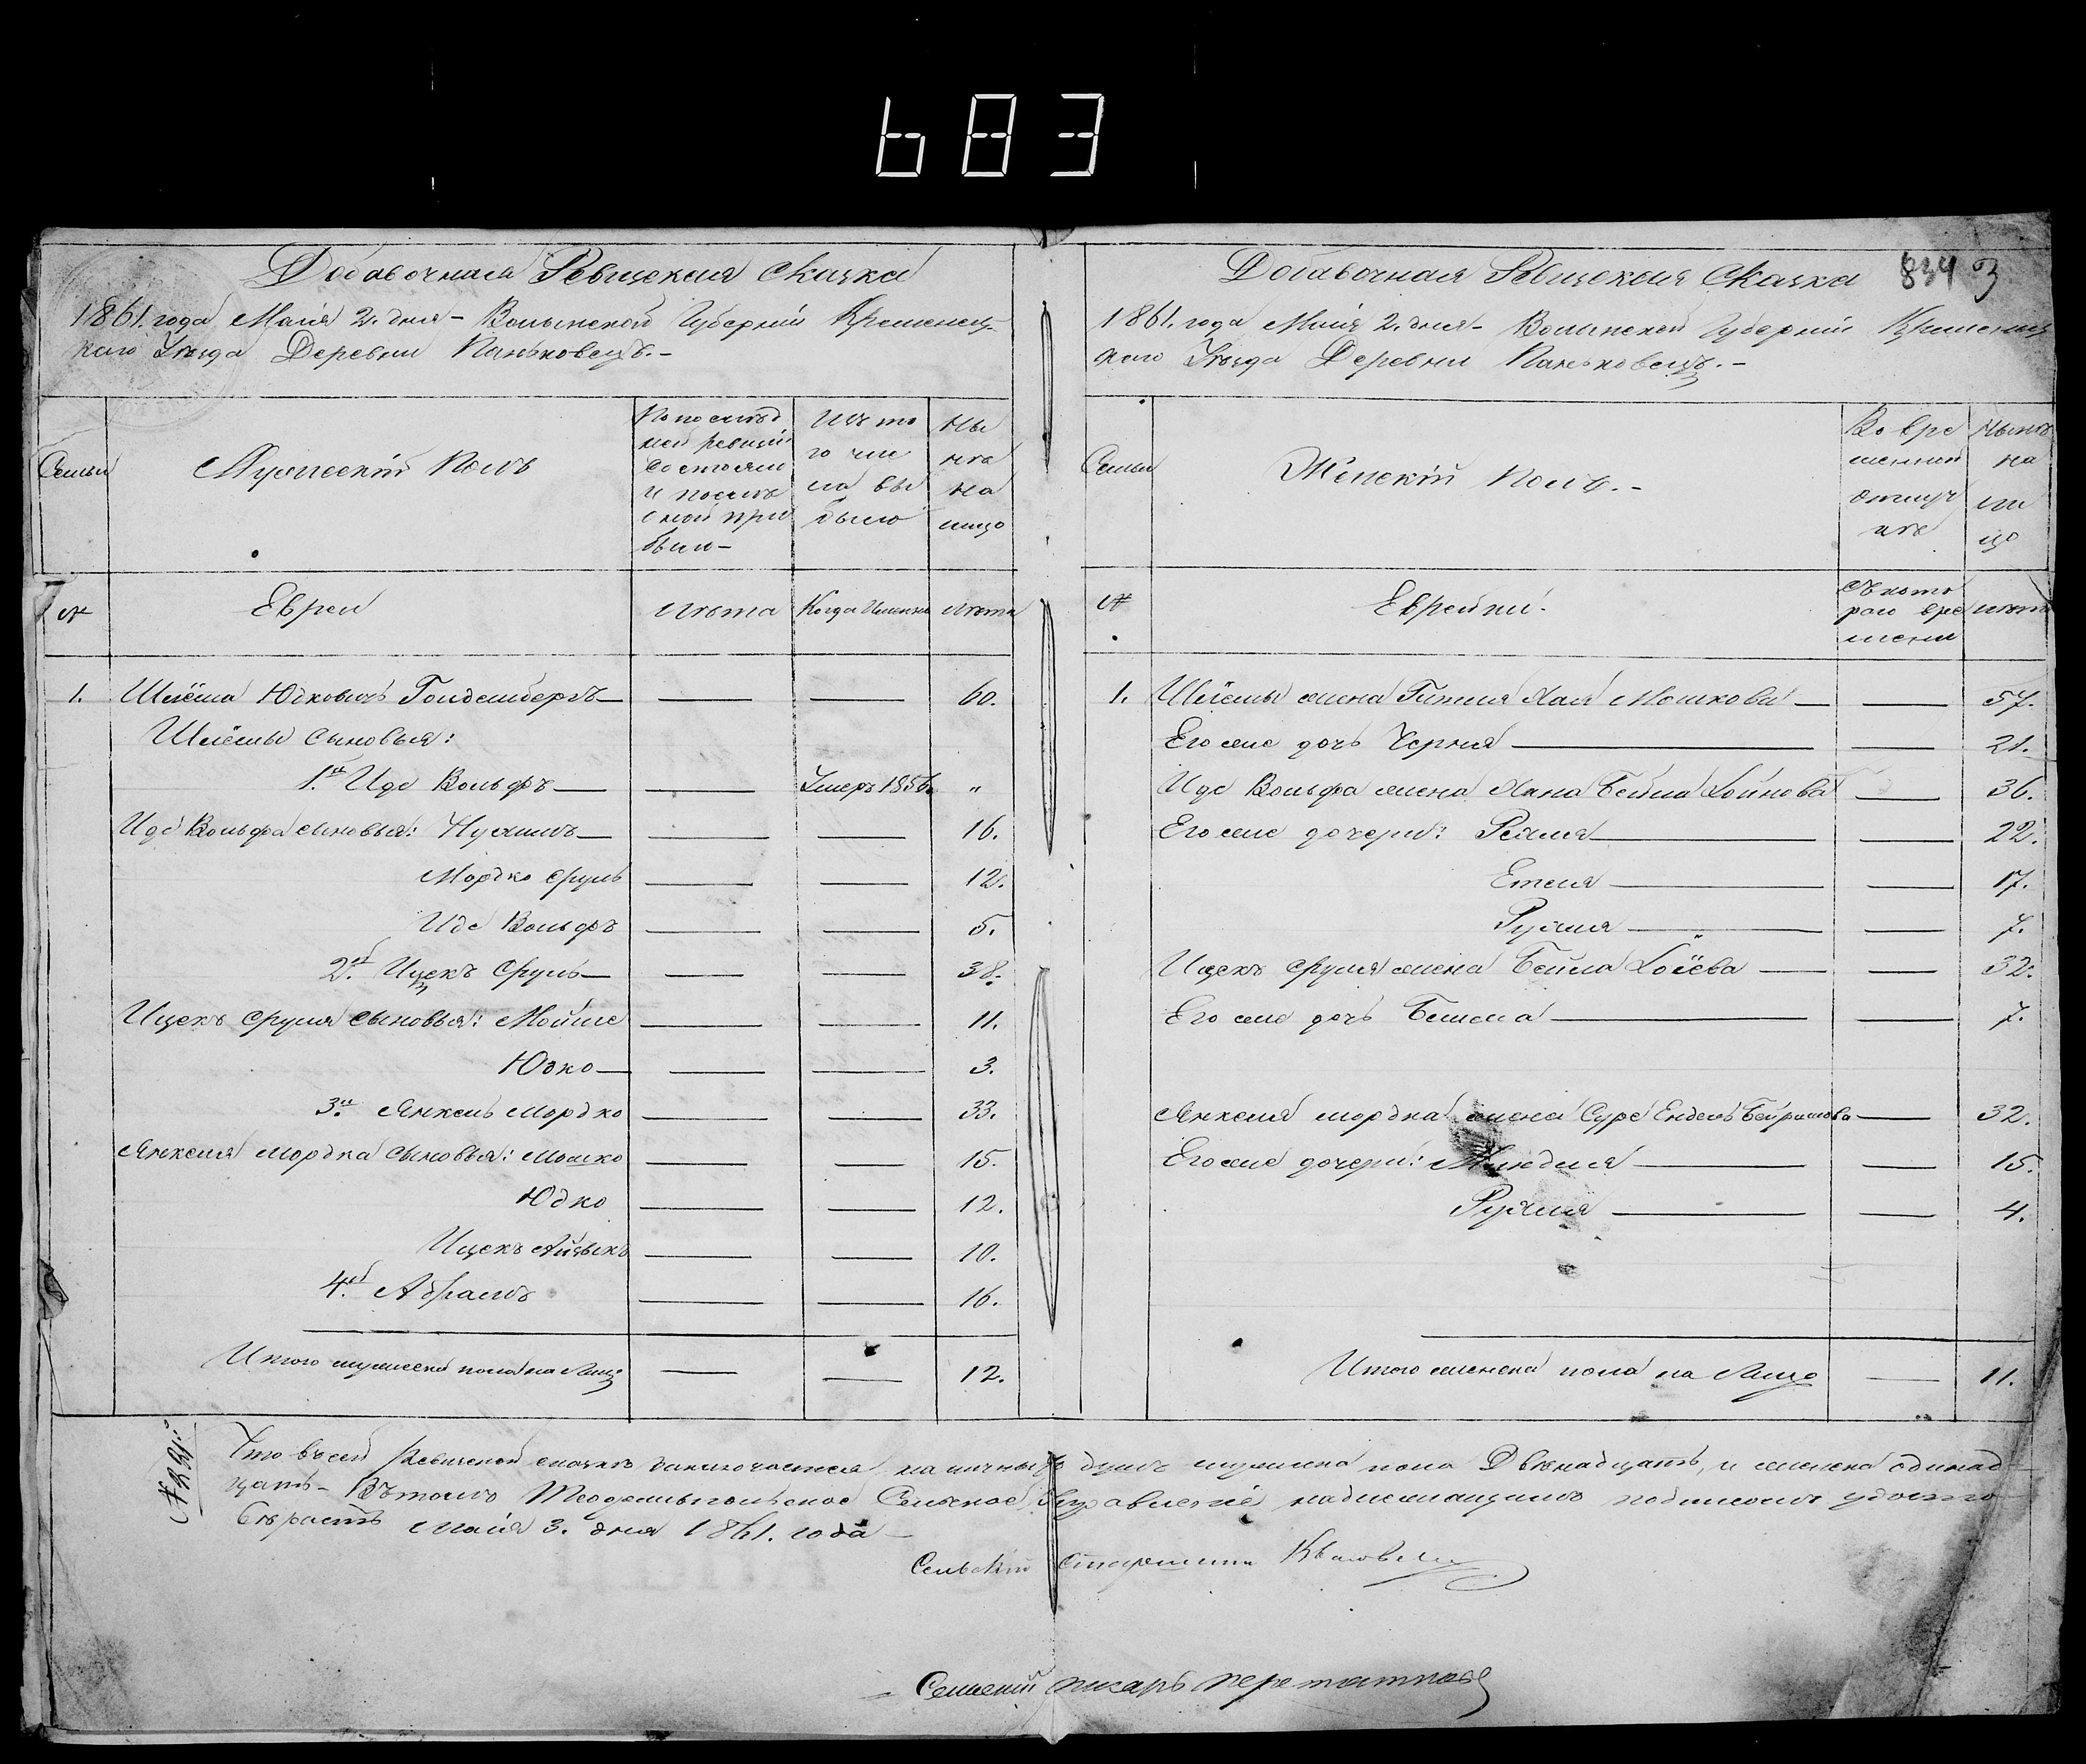 683
Добавочная Ревизская Сказка
1861. года Маія 2. дня - Волынской Губерніи Кременец-
каго Уѣзда Деревни Паньковецъ. -
Семьи
Мужескій Полъ
По послѣд
ней ревизіи
состояли
и послѣ
оной при
были -
Изъ то
го чи
сла вы
было
Ны
нѣ
на
лицо
№
Евреи
Лѣта
Когда Именно
Лѣта
1. Шлёма Юдковичъ Гольденбергъ — — 60.
Шлёмы сыновья:
1й Иде Вольфъ — Умеръ 1856. "
Иде Вольфа сыновья: Нухимъ — — 16.
Мордко Сруль — — 12.
Иде Вольфъ — — 5.
2й Ицекъ Сруль — — 38.
Ицекъ Сруля сыновья: Мойше — — 11.
Юдко — — 3.
3й Янкель Мордко — — 33.
Янкеля Мордка сыновья: Мошко — — 15.
Юдко — — 12.
Ицекъ Айзыкъ — — 10.
4й Абрамъ — — 16.
Итого мужеска пола на Лицо — — 12.
Добавочная Ревизская Сказка
834
1861. года Маія 2. дня - Волынской Губерніи Кременец
каго Уѣзда Деревни Паньковецъ. -
Семьи
Женскій Полъ. -
Во вре
менной
отлуч
кѣ
Нынѣ
на
ли
цо
№
Еврейки.
Съ кото
раго вре
мени
Лѣта
1. Шлёмы жена Гитля Хая Мошкова — — 57.
Его же дочь Черня — — 21.
Иде Вольфа жена Хана Бейла Лойнова — 36.
Его же дочери: Рейзля — — 22.
Етля — — 17.
Рухля — — 7.
Ицекъ Сруля жена Бейла Лоёва — — 32.
Его же дочь — — 7.
Янкеля Мордка жена Суре Ендель — 32.
Его же дочери: — — 15.
Рухля — — 4.
Итого женска пола на Лицо — 11.
Что въ сей Ревизской сказкѣ заключается наличныхъ душъ мужеска пола Двѣнадцать, и женска одинад
цать - Въ томъ Сельское Управленіе надлежащимъ подписомъ удосто
вѣряетъ Маія 3. дня 1861. года -
Сельскій Старшина
Сельскій писарь